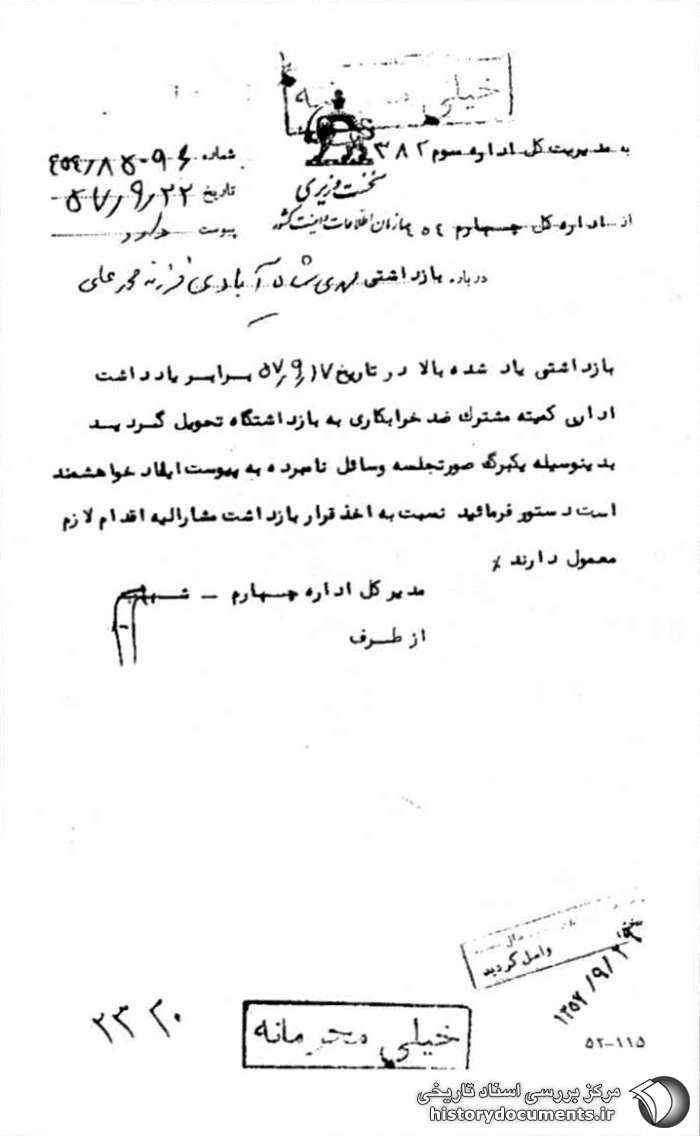 خیلی
به مدیریت کل اداره سوم ۳۸۲
شماره
تاریخ ۵۷/۹/۲۲
پیوست دارد
نخست وزیری
سازمان اطلاعات و امنیت کشور
از اداره کل چهارم ۴۵۴
درباره بازداشتی مهدی شاه آبادی فرزند محمد علی
بازداشتی یاد شده بالا در تاریخ ۵۷/۹/۱۷ برابر یادداشت
اداری کمیته مشترک ضد خرابکاری به بازداشتگاه تحویل گردید
بدینوسیله یکبرگ صورتجلسه وسائل نامبرده به پیوست ایفاد خواهشمند
است دستور فرمائید نسبت به اخذ قرار بازداشت مشارالیه اقدام لازم
معمول دارند
مدیر کل اداره چهارم –
از طرف
واصل گردید
خیلی محرمانه
۵۲-۱۱۵
مرکز بررسی اسناد تاریخی
historydocuments.ir